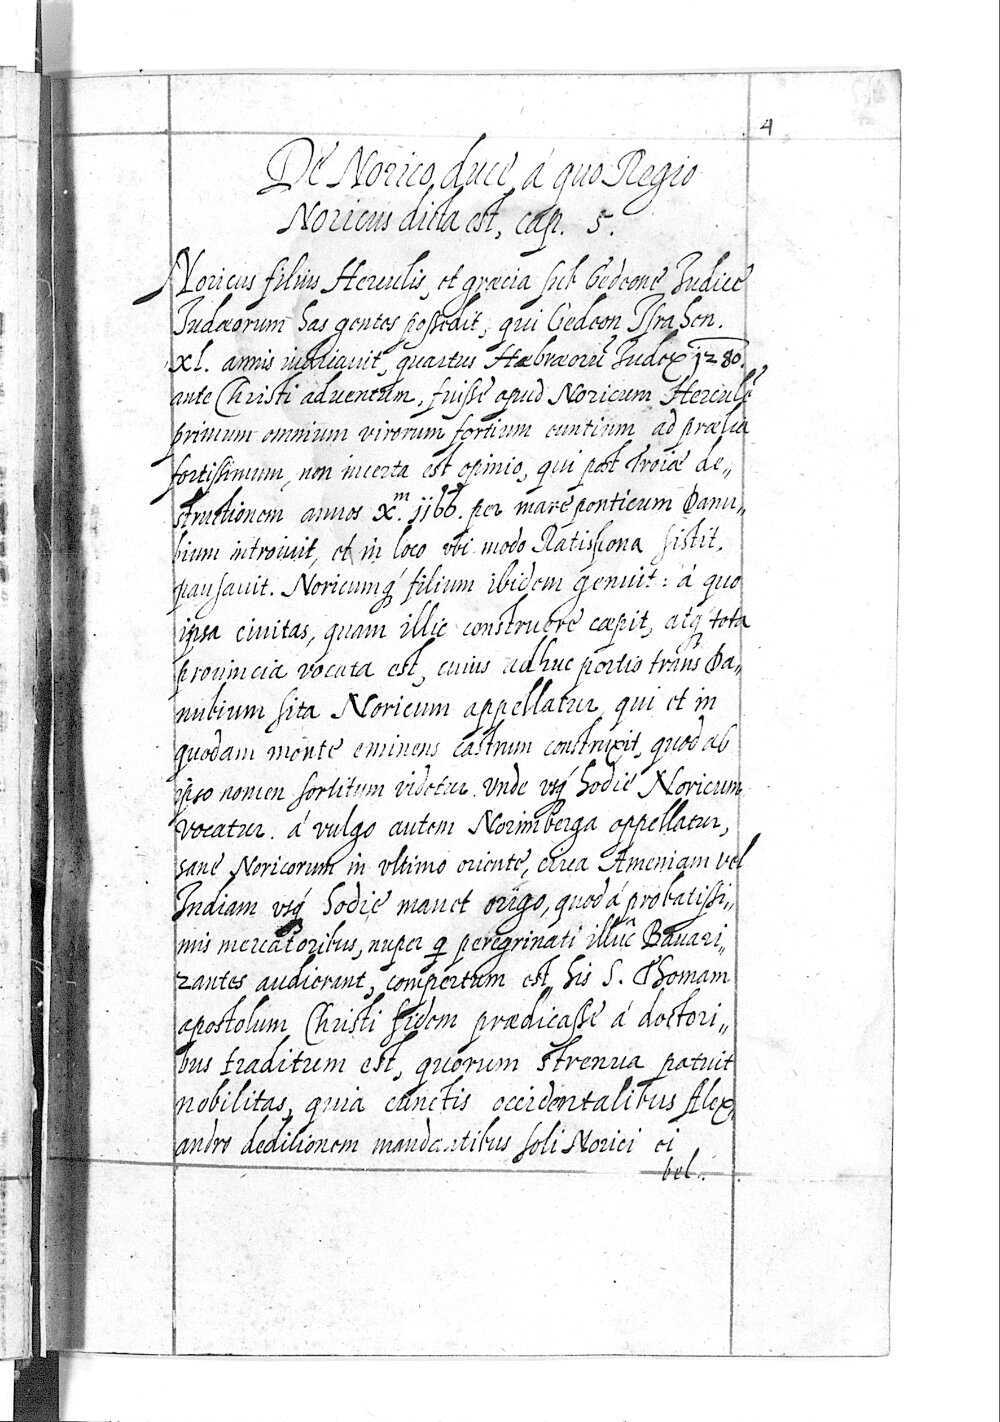 4
De Norico duce, á quo Regio
Noricus dicta est, cap. 5.
Noricus filius Herculis, et græcia sub Gedeone Judice
Judæorum has gentes possedit, qui Gedeon Isra hen.
XL. annis iudicauit, quartus Hæbræorũ Judex 1280.
ante Christi aduentum, fuisse apud Noricum Herculẽ
primum omnium virorum fortium euntium ad prælia
fortissimum, non incerta est opinio, qui post Troiæ de„
structionem annos X.m 1166. per mare ponticum Danu„
bium introiuit, et in loco vbi modo Ratispona sistit,
pausauit. Noricumq́ filium ibidem genuit: á quo
ipsa ciuitas, quam illic construere cæpit, atq́ tota
prouincia vocata est, cuius adhuc portio trans Da„
nubium sita Noricum appellatur, qui et in
quodam monte eminens castrum construxit, quod ab
ipso nomen sortitum videtur. vnde vsq́ hodie Noricum
vocatur. á vulgo autem Norimberga appellatur,
sane Noricorum in vltimo oriente, circa Ameniam vel
Indiam vsq́ hodie manet origo, quod á probatissi„
mis mercatoribus, nuper q peregrinati illuc Bauari„
zantes audierant, compertum est, his S. Thomam
apostolum Christi fidem prædicasse á doctori„
bus traditum est, quorum strenua patuit
nobilitas, quia cunctis occidentalibus Alex„
andro deditionem mandantibus soli Norici ei
bel.